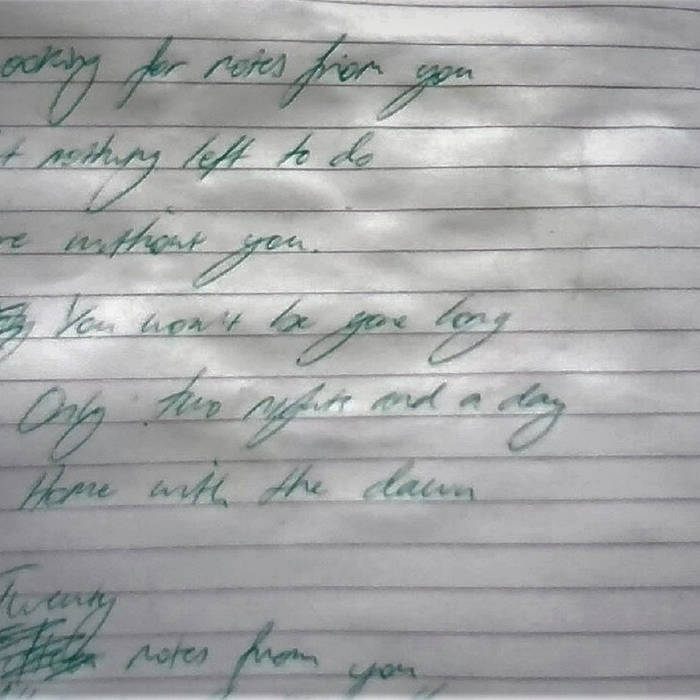 ooking for notes from you
t nothing left to do
re without you.
You won't be gone long
Only two nights and a day
Home with the dawn
Twenty
notes from you